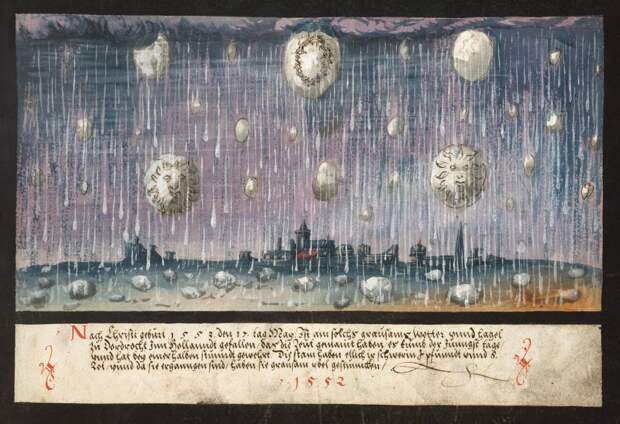 Nach Christi gebürt 1552 den 17 tag May Ist ain solchs grausams Wetter vnnd hagel
Zu Dordrocht Inn Hollanndt gefallen, das die Leüt gemaint haben, es kumb der Jüngst tage
vnnd hat bey einer halben stunndt gewehrt Die stain haben etlich schwerin pfundt vnnd 8
Lot vnnd da sie ergangen sind, haben sie grausam vbel gestunncken
1552